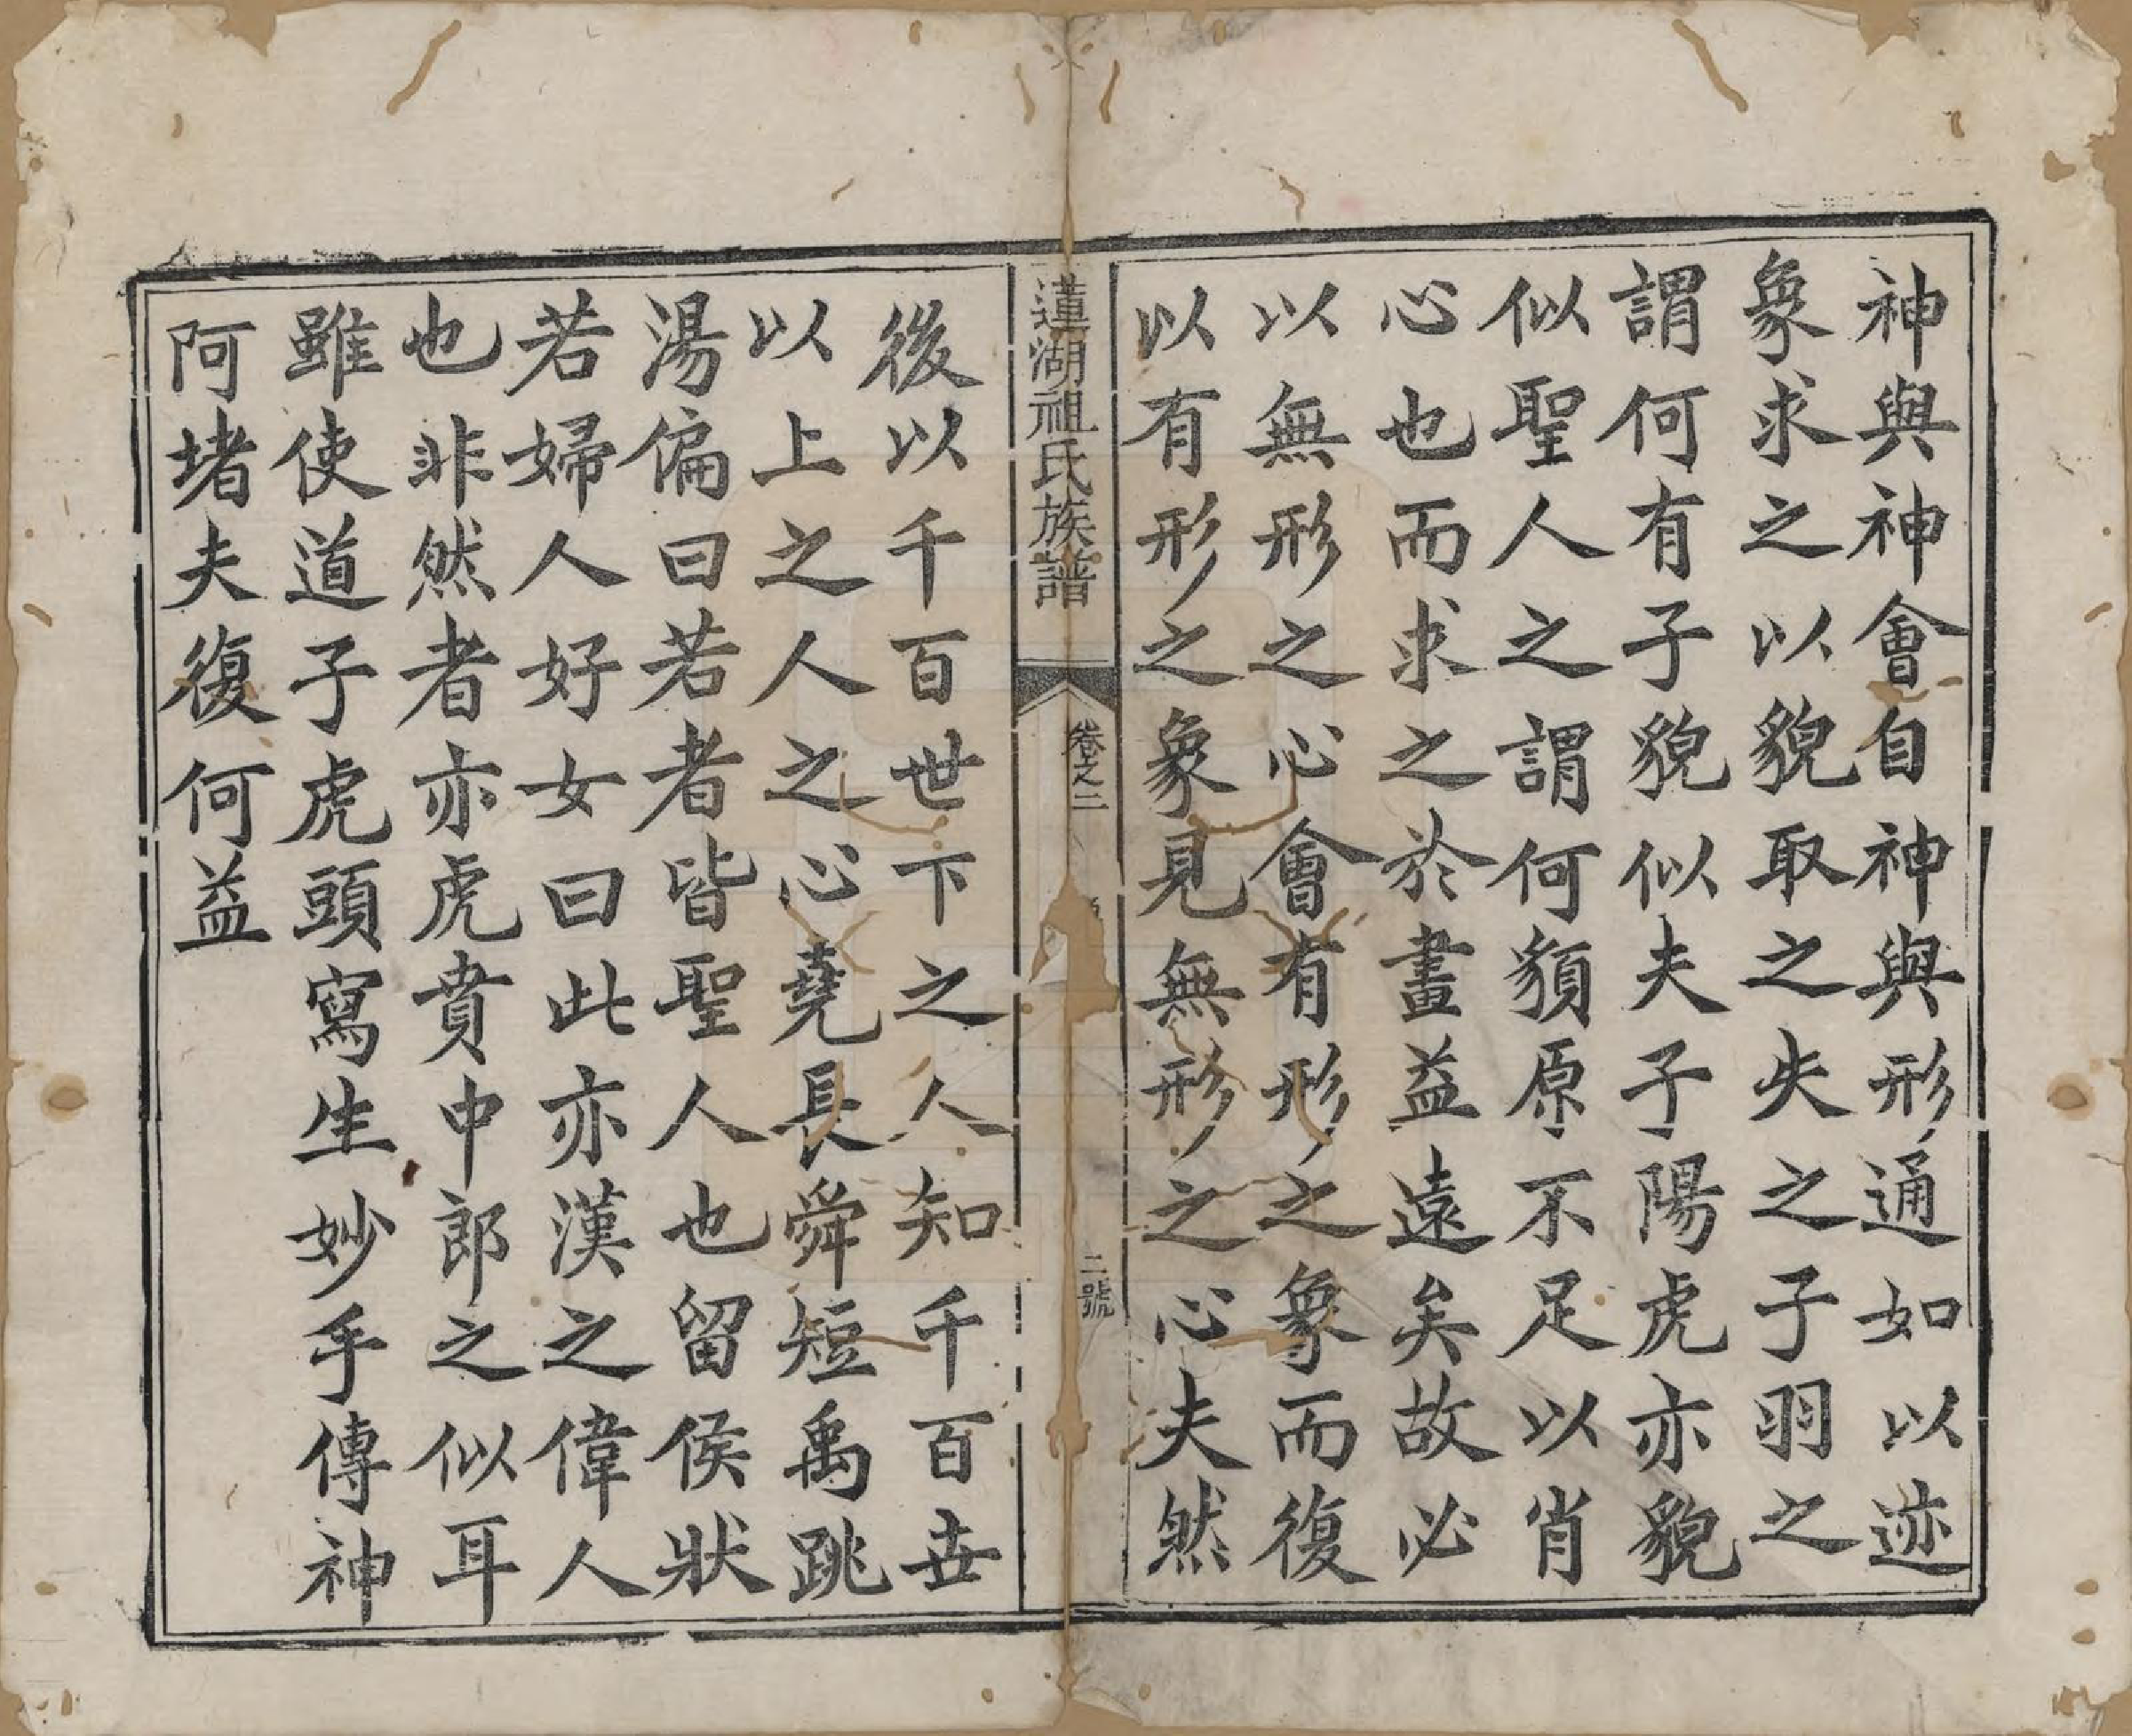 神與神會自神與形通如以迹
象求之以貌取之失之子羽之
謂何有子貌似夫子陽虎亦貌
似聖人之謂何額原不足以肖
心也而求之於畫益遠矣故必
以無形之心會有形之象而復
以有形之象見無形之心夫然
蓮湖祖氏族譜
卷之二
二號
後以千百世下之人知千百世
以上之人之心堯長舜短禹跳
湯偏曰若者皆聖人也留侯狀
若婦人好女曰此亦漢之偉人
也非然者亦虎賁中郎之似耳
雖使道子虎頭寫生妙手傳神
阿堵夫復何益